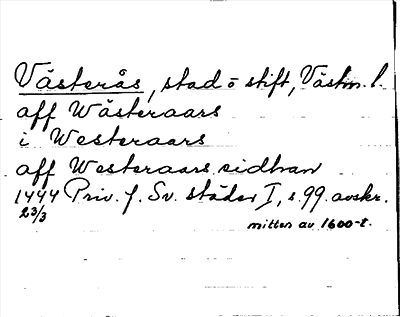 Västerås, stad o stift, Västm. l.
aff Wästeraars
i Westeraars
aff Westeraars sidhan
1444 Priv. f. Sv. städer I, s. 99. avskr.
23/3
mitten av 1600-t.